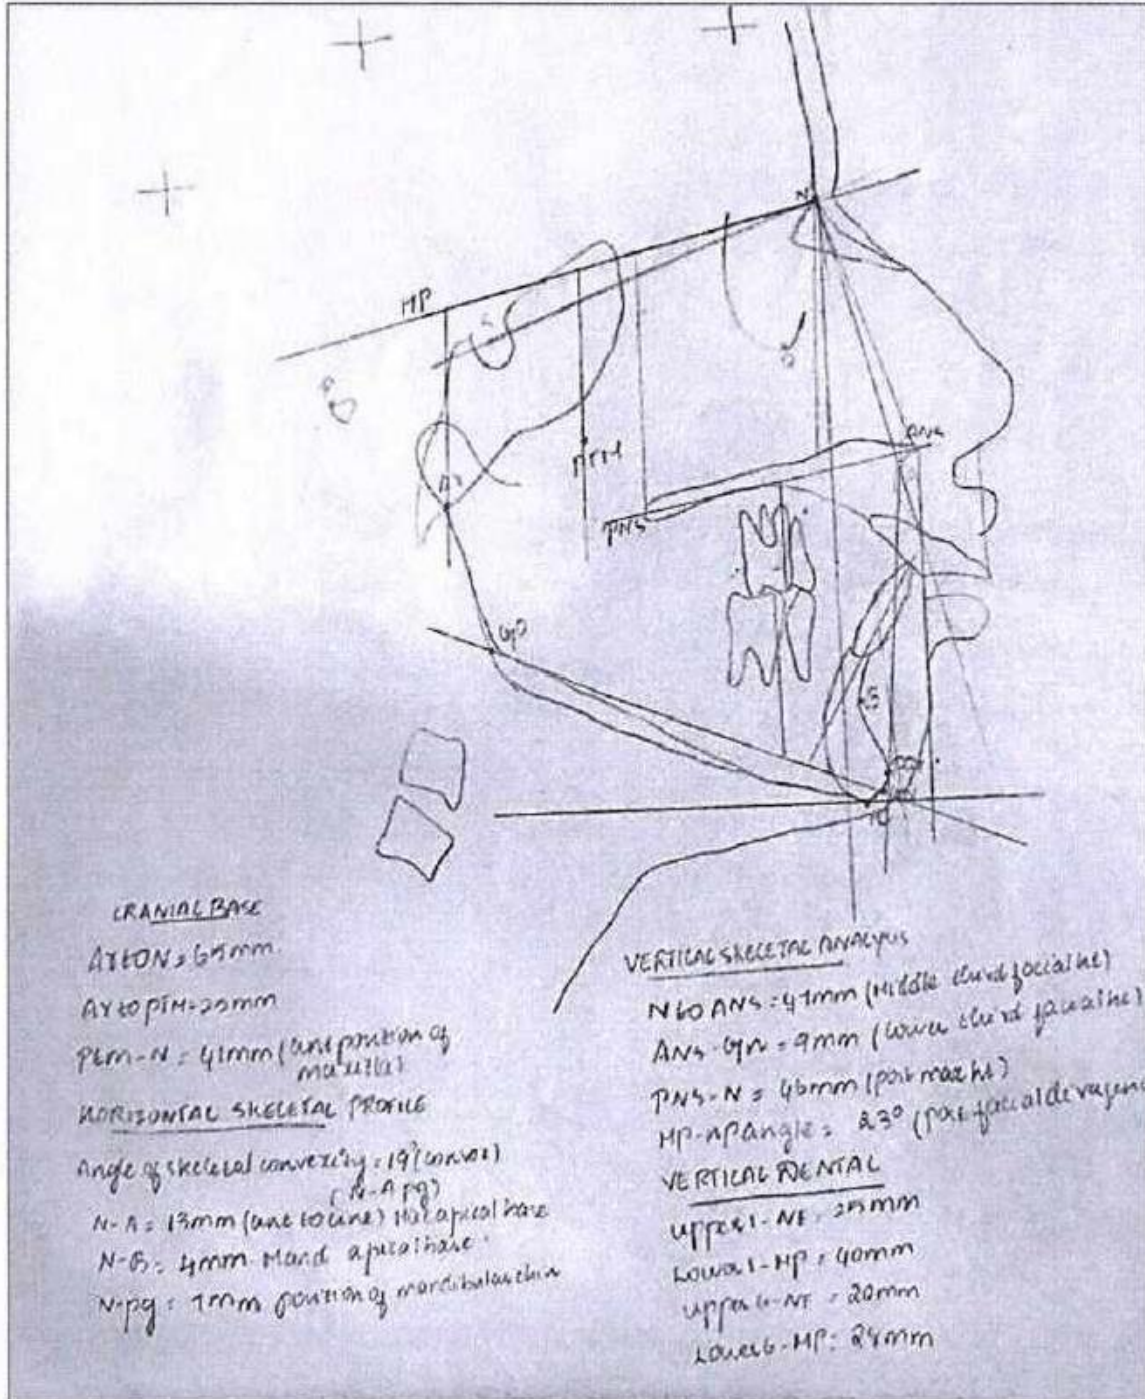 N
HP
S
O
Ar
PTM
ANS
PNS
GO
B
CRANIAL BASE
Ar to PTM = 23mm
Ptm-N = 41mm (ant position of
HORIZONTAL SKELETAL PROFILE
Angle of skeletal convexity = 19° (convex)
(N-A pg)
N-A = 13mm (ant to line) apical base
N-B = 4mm Mand apical base
N-pg = 7mm position of mandibular chin
VERTICAL SKELETAL ANALYSIS
N to ANS = 47mm (Middle third facial ht)
ANS-Gn = 9mm (lower third facial ht)
PNS-N = 46mm (post max ht)
HP-MP Angle = 23°
VERTICAL DENTAL
upper 1-NF = 25mm
Lower 1-MP = 40mm
upper 6-NF = 20mm
Lower 6-MP = 28mm